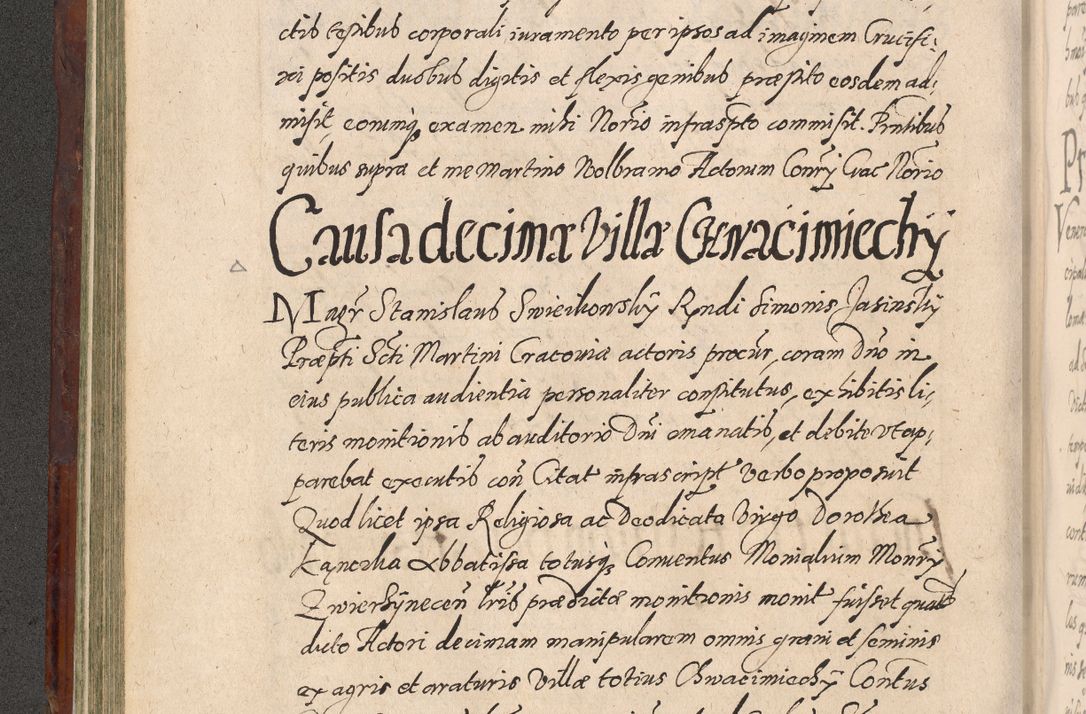 ctis testibus corporali iuramento per ipsos ad imaginem Crucifi,
xi positis duobus digitis et flexis genibus præstito eosdem ad,
misit, eorumq examen mihi Norio infraspto commisit. Pntibus
quibus supra et me Martino Wolbramo Actorum Conry Crac Norio
Causa decimæ Villæ Chwacimiechÿ
Magr Stanislaus SwiecikowskÿRndi Simonis Jasinskÿ
Præpti Scti Martini Cracoviæ actoris procur, coram Dno in
eius publica audientia personaliter constitutus, exhibitis li,
teris monitionis ab auditorio Dni emanatis, et debite ut ap,
parebat executis con Citat infrascript verbo proposuit
Quod licet ipsa Religiosa ac Deodicata Virgo Dorothea
Kąnczka Abbatissa totusq Conventus Monialium Monry
Zwierhÿnecen lris prædictæ monitionis monit fuisset quat
dicto Actori decimam manipularem omnis grani et seminis
ex agris et araturis Villæ totius Chwacimiechÿ Contus